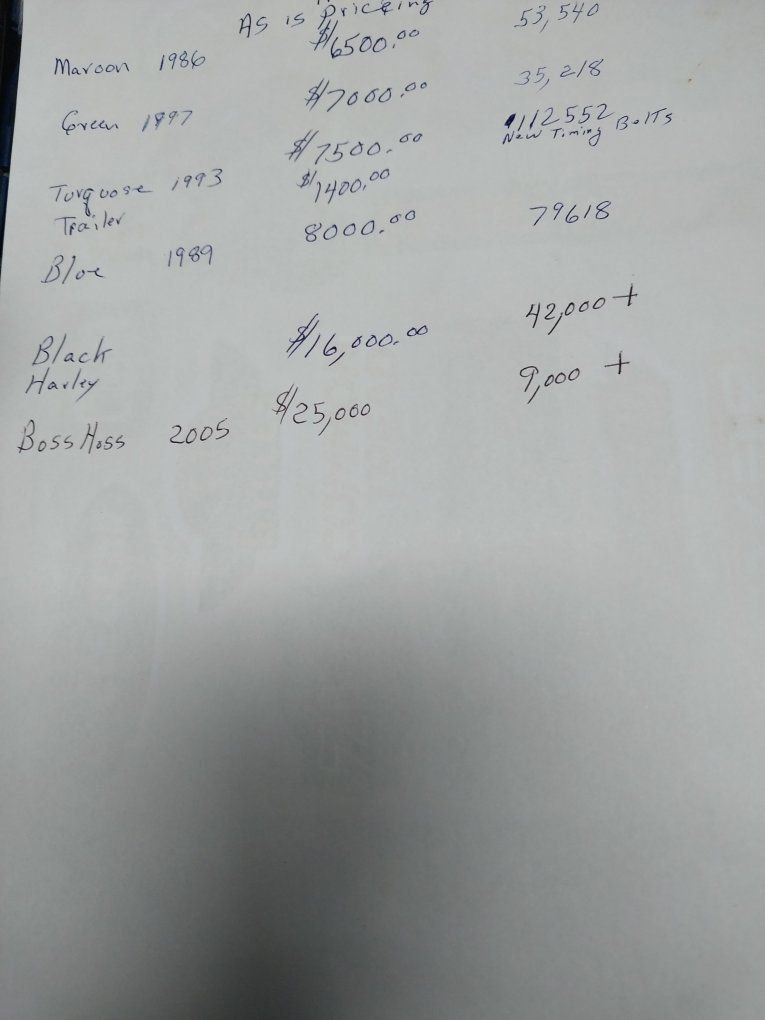 As is Priceing
Maroon 1986 $6500.00 53,540
Green 1997 $7000.00 35,218
Turquose 1993 $7500.00 112552
New Timing Belts
Trailer $1400.00
Blue 1989 8000.00 79618
Black $16,000.00 42,000 +
Harley
Boss Hoss 2005 $25,000 9,000 +